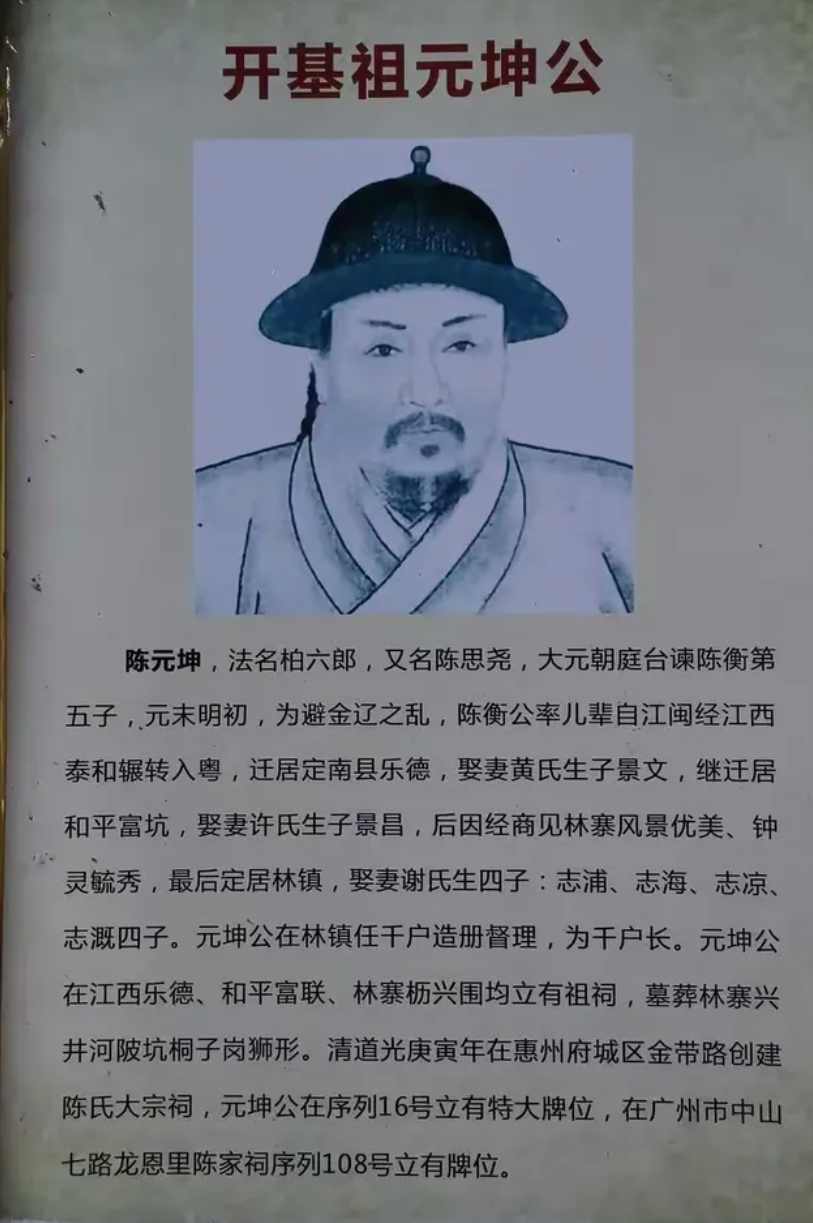 开基祖元坤公
陈元坤，法名柏六郎，又名陈思尧，大元朝庭台谏陈衡第
五子，元末明初，为避金辽之乱，陈衡公率儿辈自江闽经江西
泰和辗转入粤，迁居定南县乐德，娶妻黄氏生子景文，继迁居
和平富坑，娶妻许氏生子景昌，后因经商见林寨风景优美、钟
灵毓秀，最后定居林镇，娶妻谢氏生四子：志浦、志海、志凉、
志溉四子。元坤公在林镇任千户造册督理，为千户长。元坤公
在江西乐德、和平富联、林寨枥兴围均立有祖祠，墓葬林寨兴
井河陂坑桐子岗狮形。清道光庚寅年在惠州府城区金带路创建
陈氏大宗祠，元坤公在序列16号立有特大牌位，在广州市中山
七路龙恩里陈家祠序列108号立有牌位。